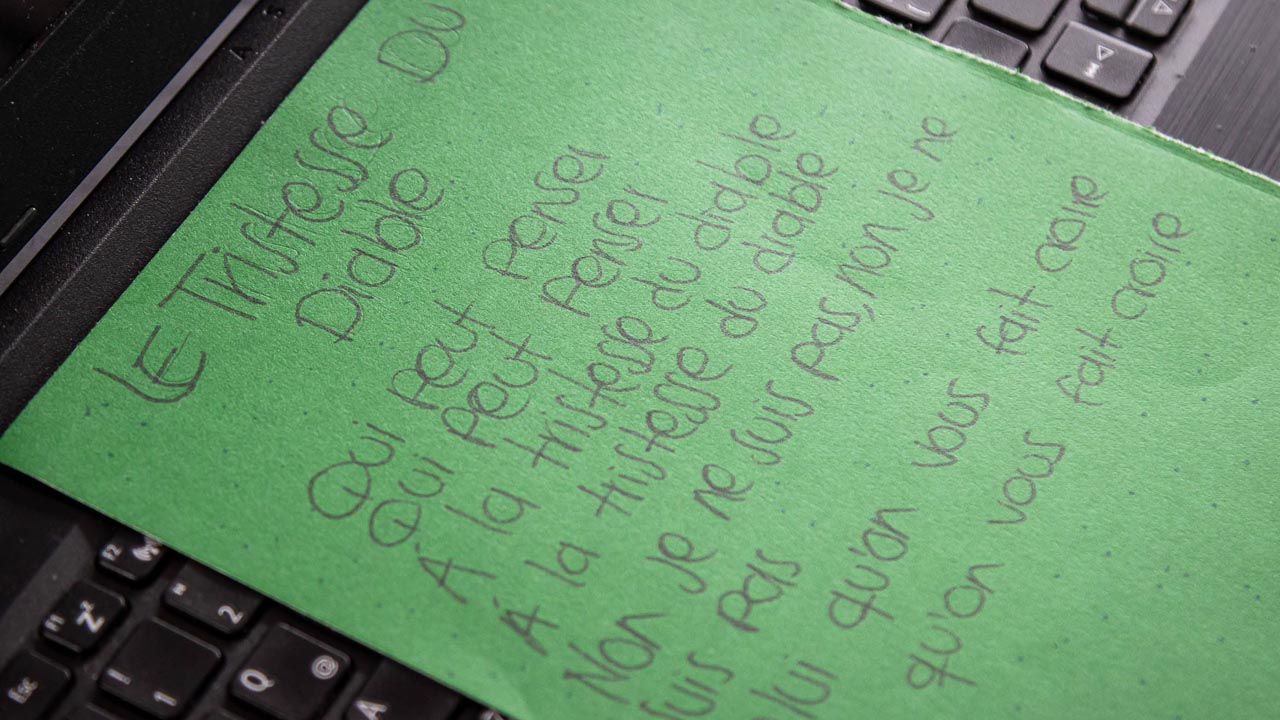 LE Tristesse DU
Diable
Qui peut penser
Qui peut penser
À la tristesse du diable
À la tristesse du diable
Non je ne suis pas, non je ne
suis pas
lui qu'on vous fait croire
qu'on vous fait croire
F2
F1
Esc
" 2
! 1
Q @
A